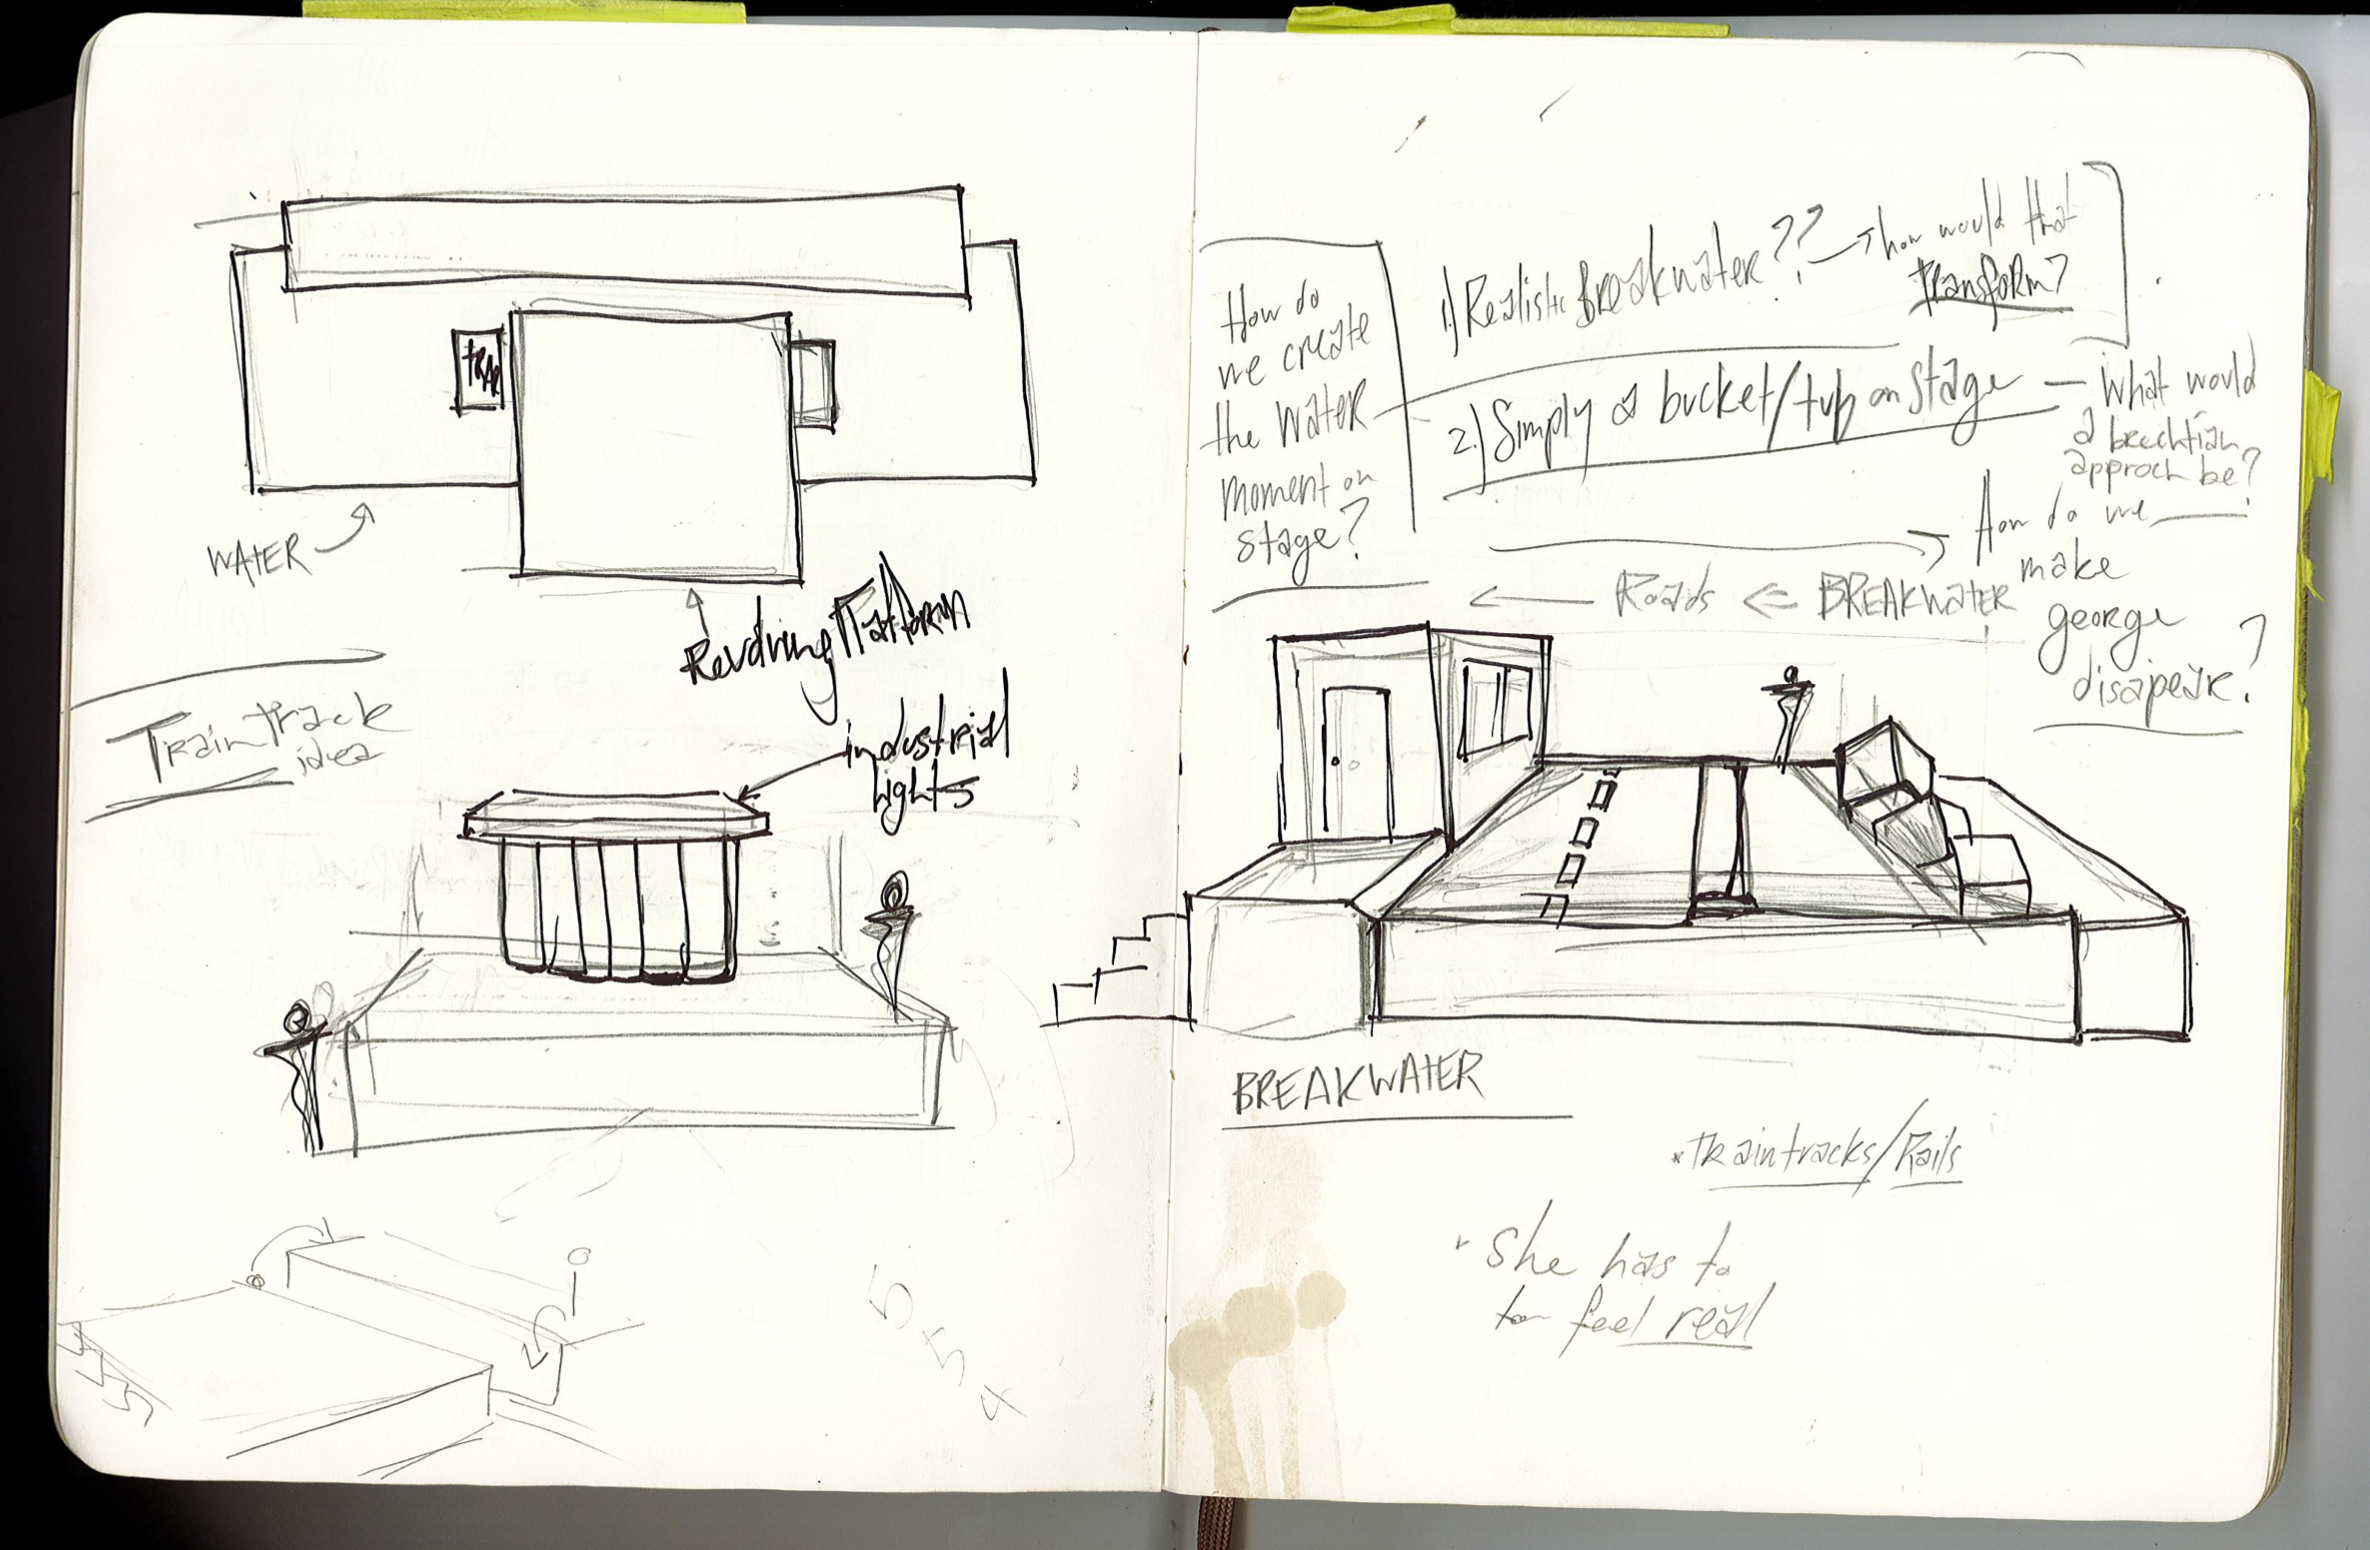 TRAP
WATER
Revolving Platform
Train track
idea
industrial
Lights
5
5
4
How do
we create
the WATER
moment on
stage?
1.) Realistic Breakwater?? → how would that
transform?
2.) Simply a bucket/tub on stage — What would
a brechtian
approch be?
How do we
make
george
disapear?
← Roads ⇐ BREAKWATER
BREAKWATER
* Traintracks/Rails
She has to
to feel real